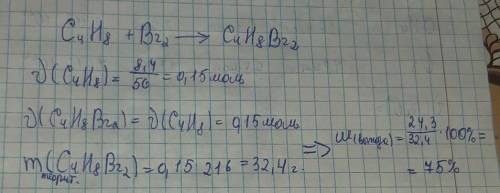 C₄H₈ + Br₂ → C₄H₈Br₂
ν(C₄H₈) = 8,4/56 = 0,15 моль
ν(C₄H₈Br₂) = ν(C₄H₈) = 0,15 моль
m(C₄H₈Br₂) = 0,15 · 216 = 32,4 г.
теорит.
⇒ W(выхода) = 24,3/32,4 · 100% =
= 75%